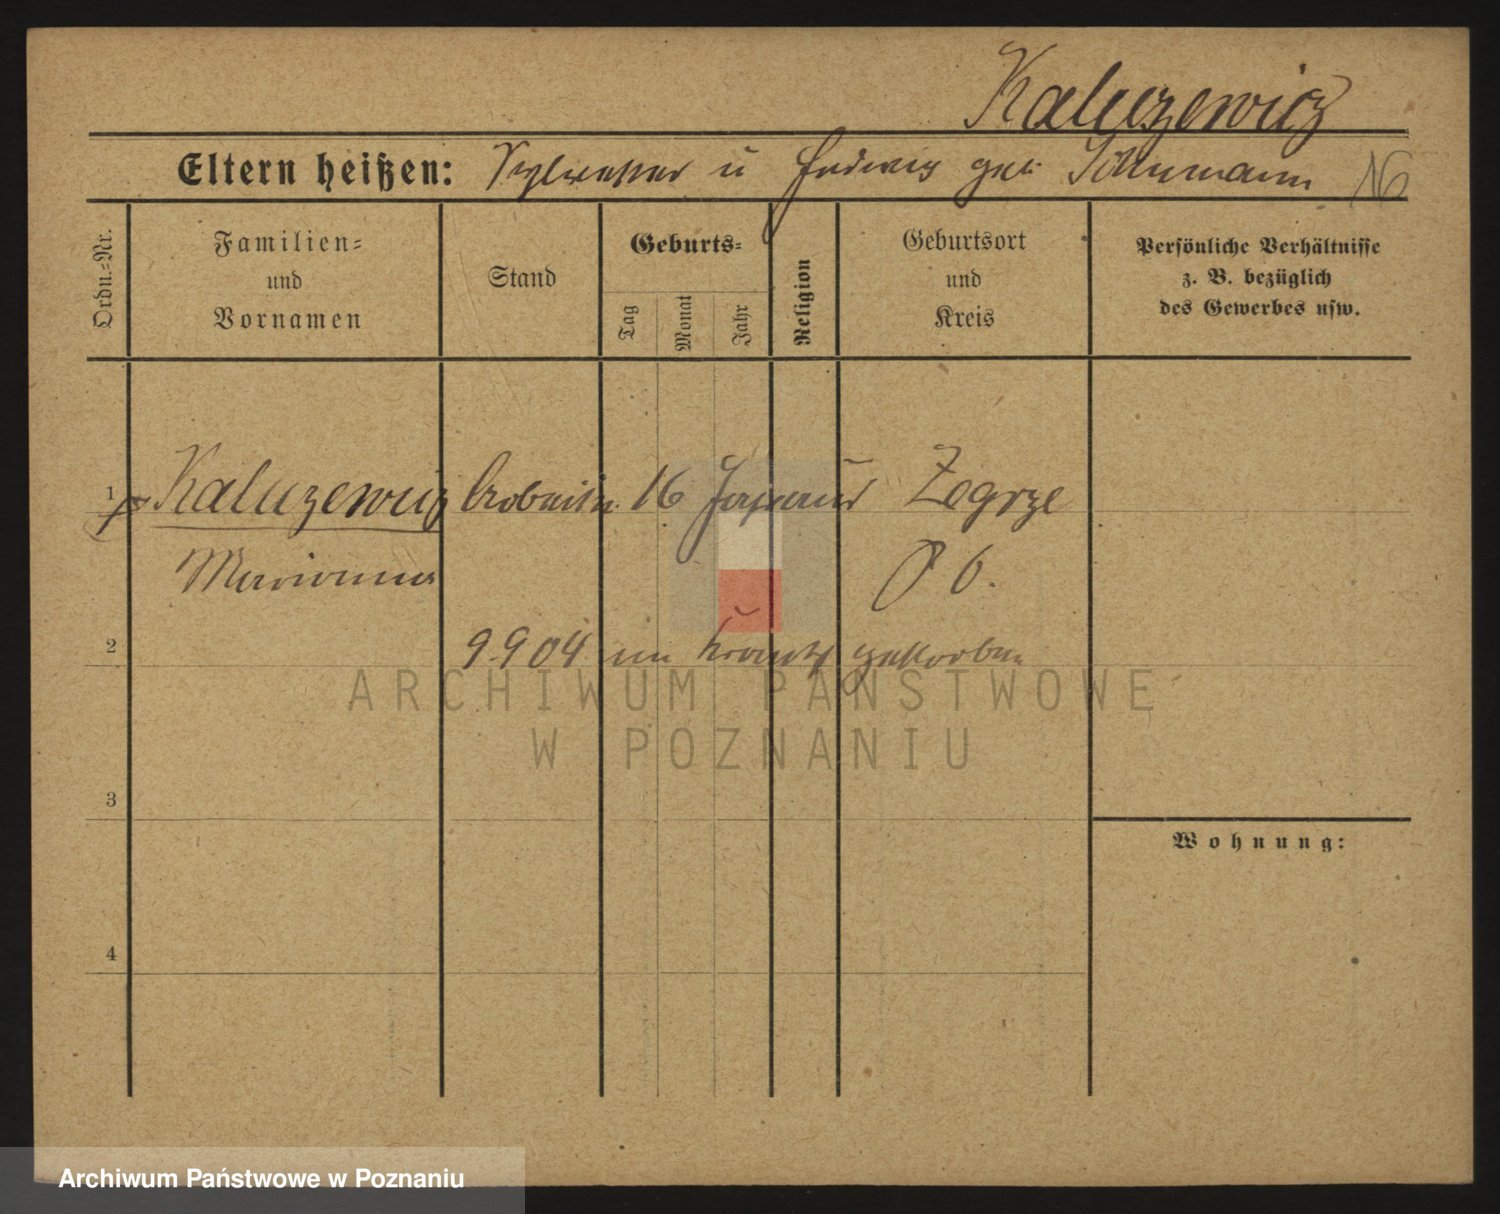 Kaluzewicz
Eltern heißen: Sylvester u Hedwig geb. Schumann 16
Ordn.-Nr.
Familien-
und
Vornamen
Stand
Geburts-
Tag
Monat
Jahr
Religion
Geburtsort
und
Kreis
Persönliche Verhältnisse
z. B. bezüglich
des Gewerbes usw.
1 Kaluzewicz Arbeiter 16 Januar Zegrze
Marianna P O.
2 9.9 04 im Krankh gestorben
ARCHIWUM PAŃSTWOWE
W POZNANIU
3
Wohnung:
4
Archiwum Państwowe w Poznaniu